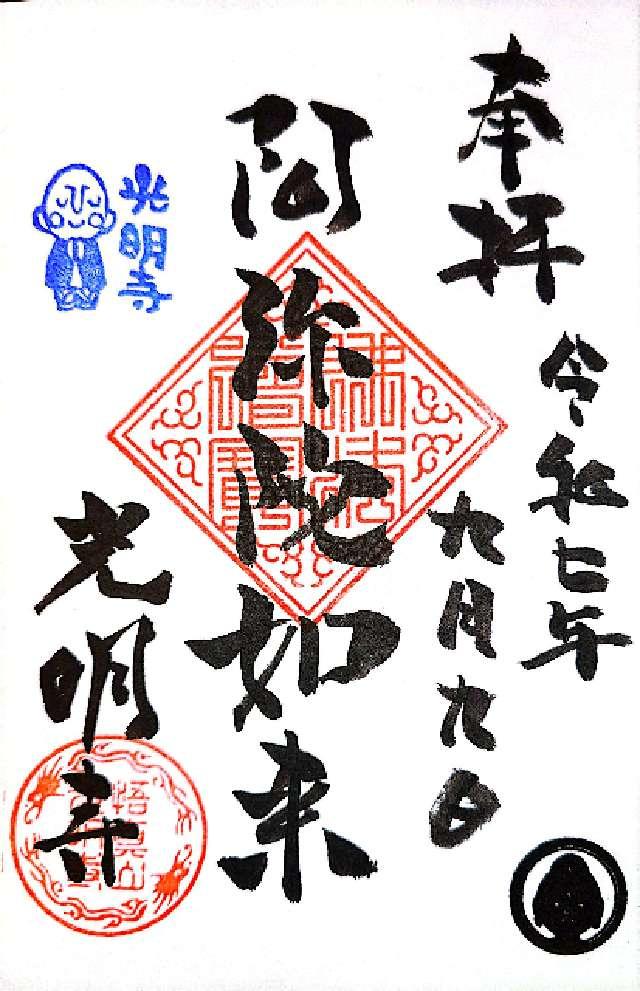 奉拝
令和七年
九月九日
阿弥陀如来
光明寺
光明寺